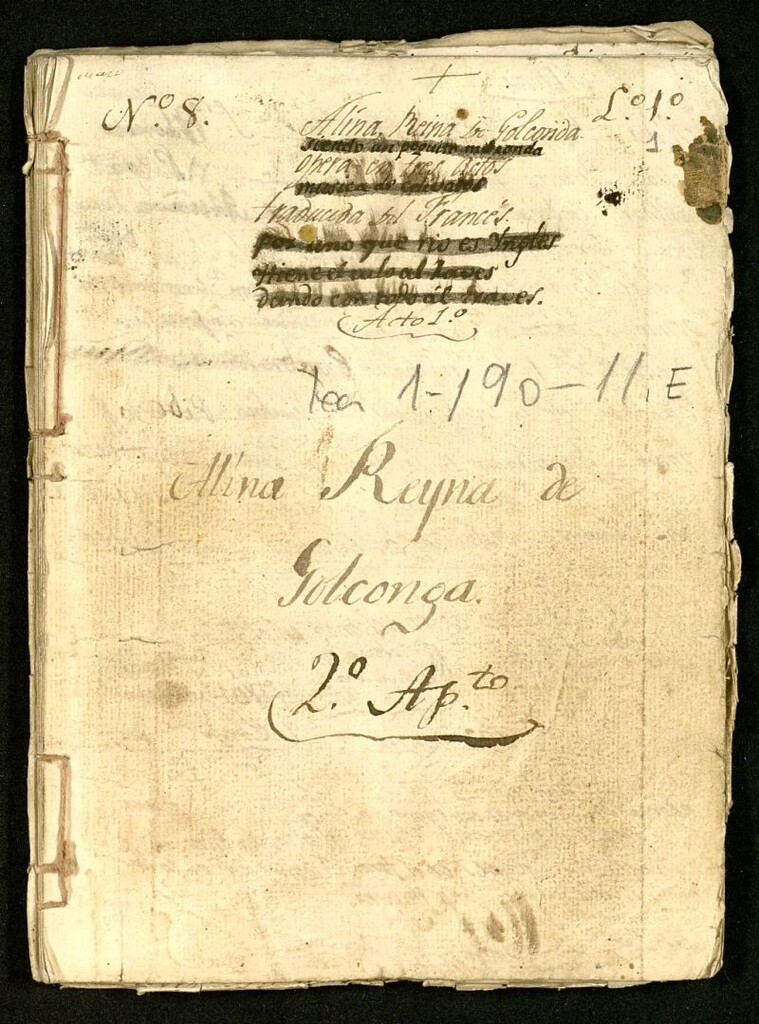 +
N.º 8.
L.º 1.º
1
Alina, Reina de Golconda
siendo un poquito mojonda
opera en tres actos
musica de
traducida del Francés.
por uno que no es Yngles
tiene el culo al
dando con todo ál traves.
Acto 1.º
Tea 1-190-11, E
Alina Reyna de
Golconga.
2.º Ap.to